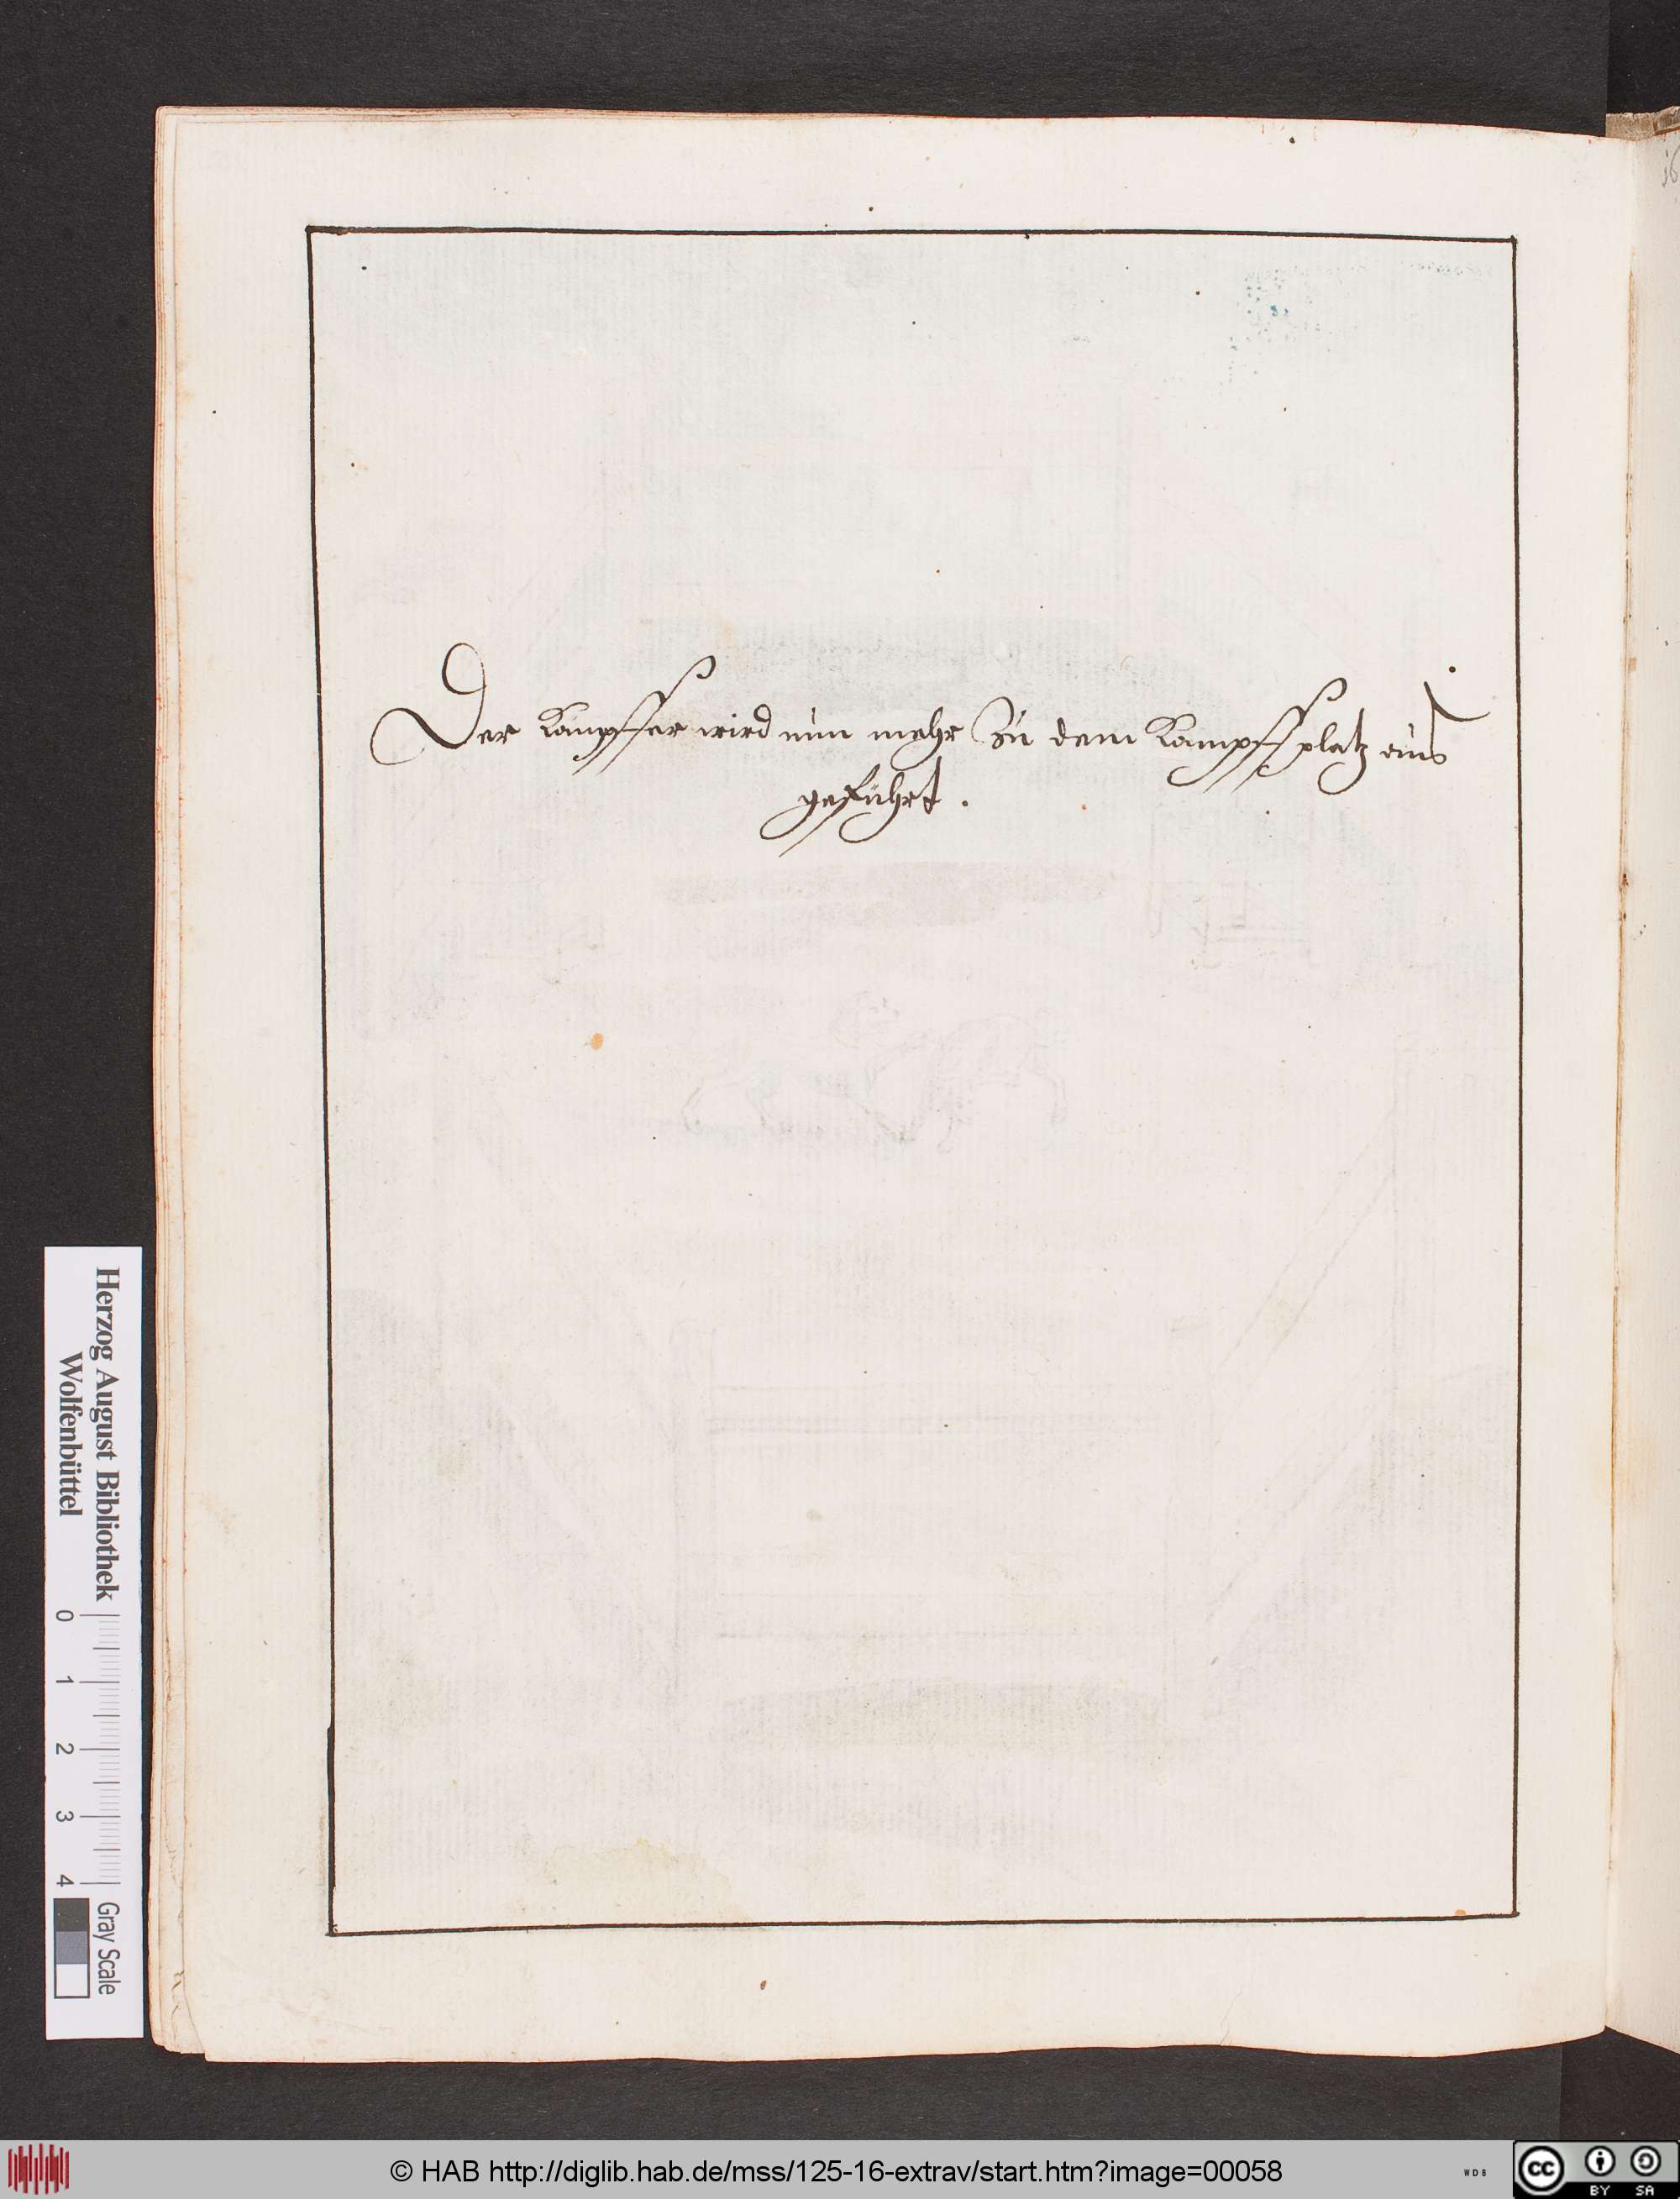 Der Kämpffer wird nun mehr Zu dem Kampffplatz aus
geführt.
16
Herzog August Bibliothek
Wolfenbüttel
0 1 2 3 4
Gray Scale
© HAB http://diglib.hab.de/mss/125-16-extrav/start.htm?image=00058
WDB
cc
BY SA